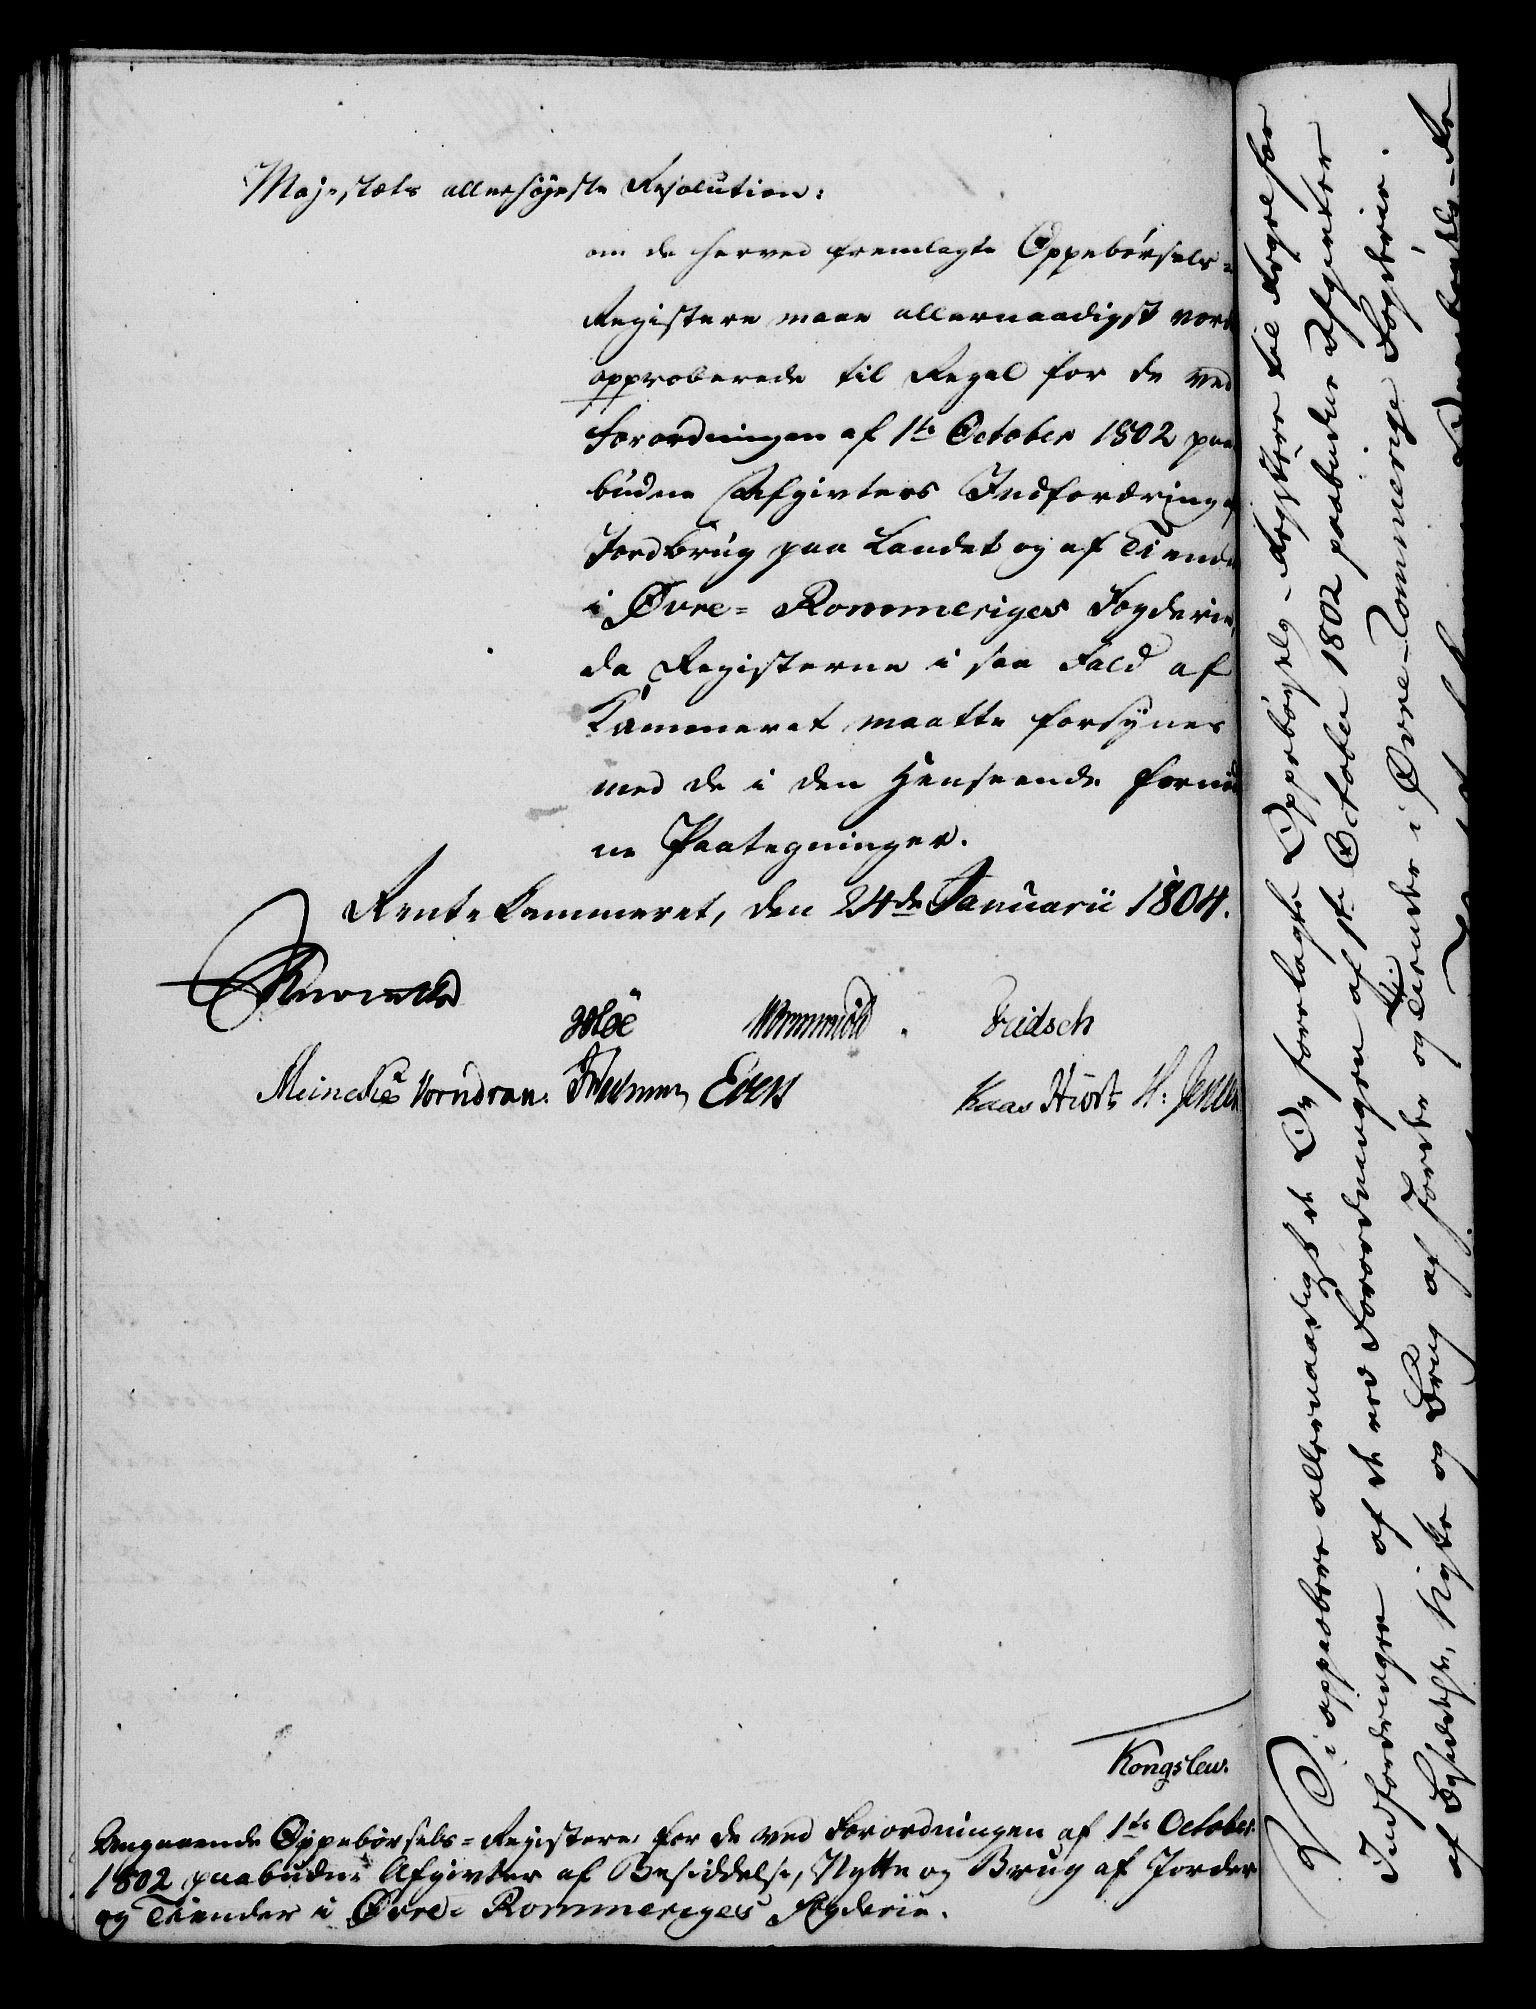 Majestæts allerhøyeste Resolution:
om de herved fremlagte Oppebörsels-
Registere maae allernaadigst vord
approberede til Regel for de ved
Forordningen af 1te October 1802 paa
budne Afgivters Indfordring af
Jordbrug paa Landet og af Tiende
i Øvre-Rommeriges Fogderie,
da Registerne i saa Fald af
Kammeret maatte forsÿnes
med de i den Henseende forn
ne Paategninger.
Rente Kammeret, den 24de Januarii 1804.
Fridsch
Meincke Vorndran. Evers Kaas Hiort H: Jensen
Kongslew.
Angaaende Oppebörsels-Registere for de ved Forordningen af 1te October
1802 paabudne Afgivter af Besiddelse, Nytte og Brug af Jorder
og Tiender i Øvre-Rommeriges Fogderie.
Vi approbere allernaadigst de Os forelagte Oppebørsels-Registere til Regel for
Indfordringen af de ved Forordningen af 1te October 1802 paabudne Afgivter
af Besiddelse, Nytte og Brug af Jorder og Tiender i Øvre-Rommerige Fogderie.